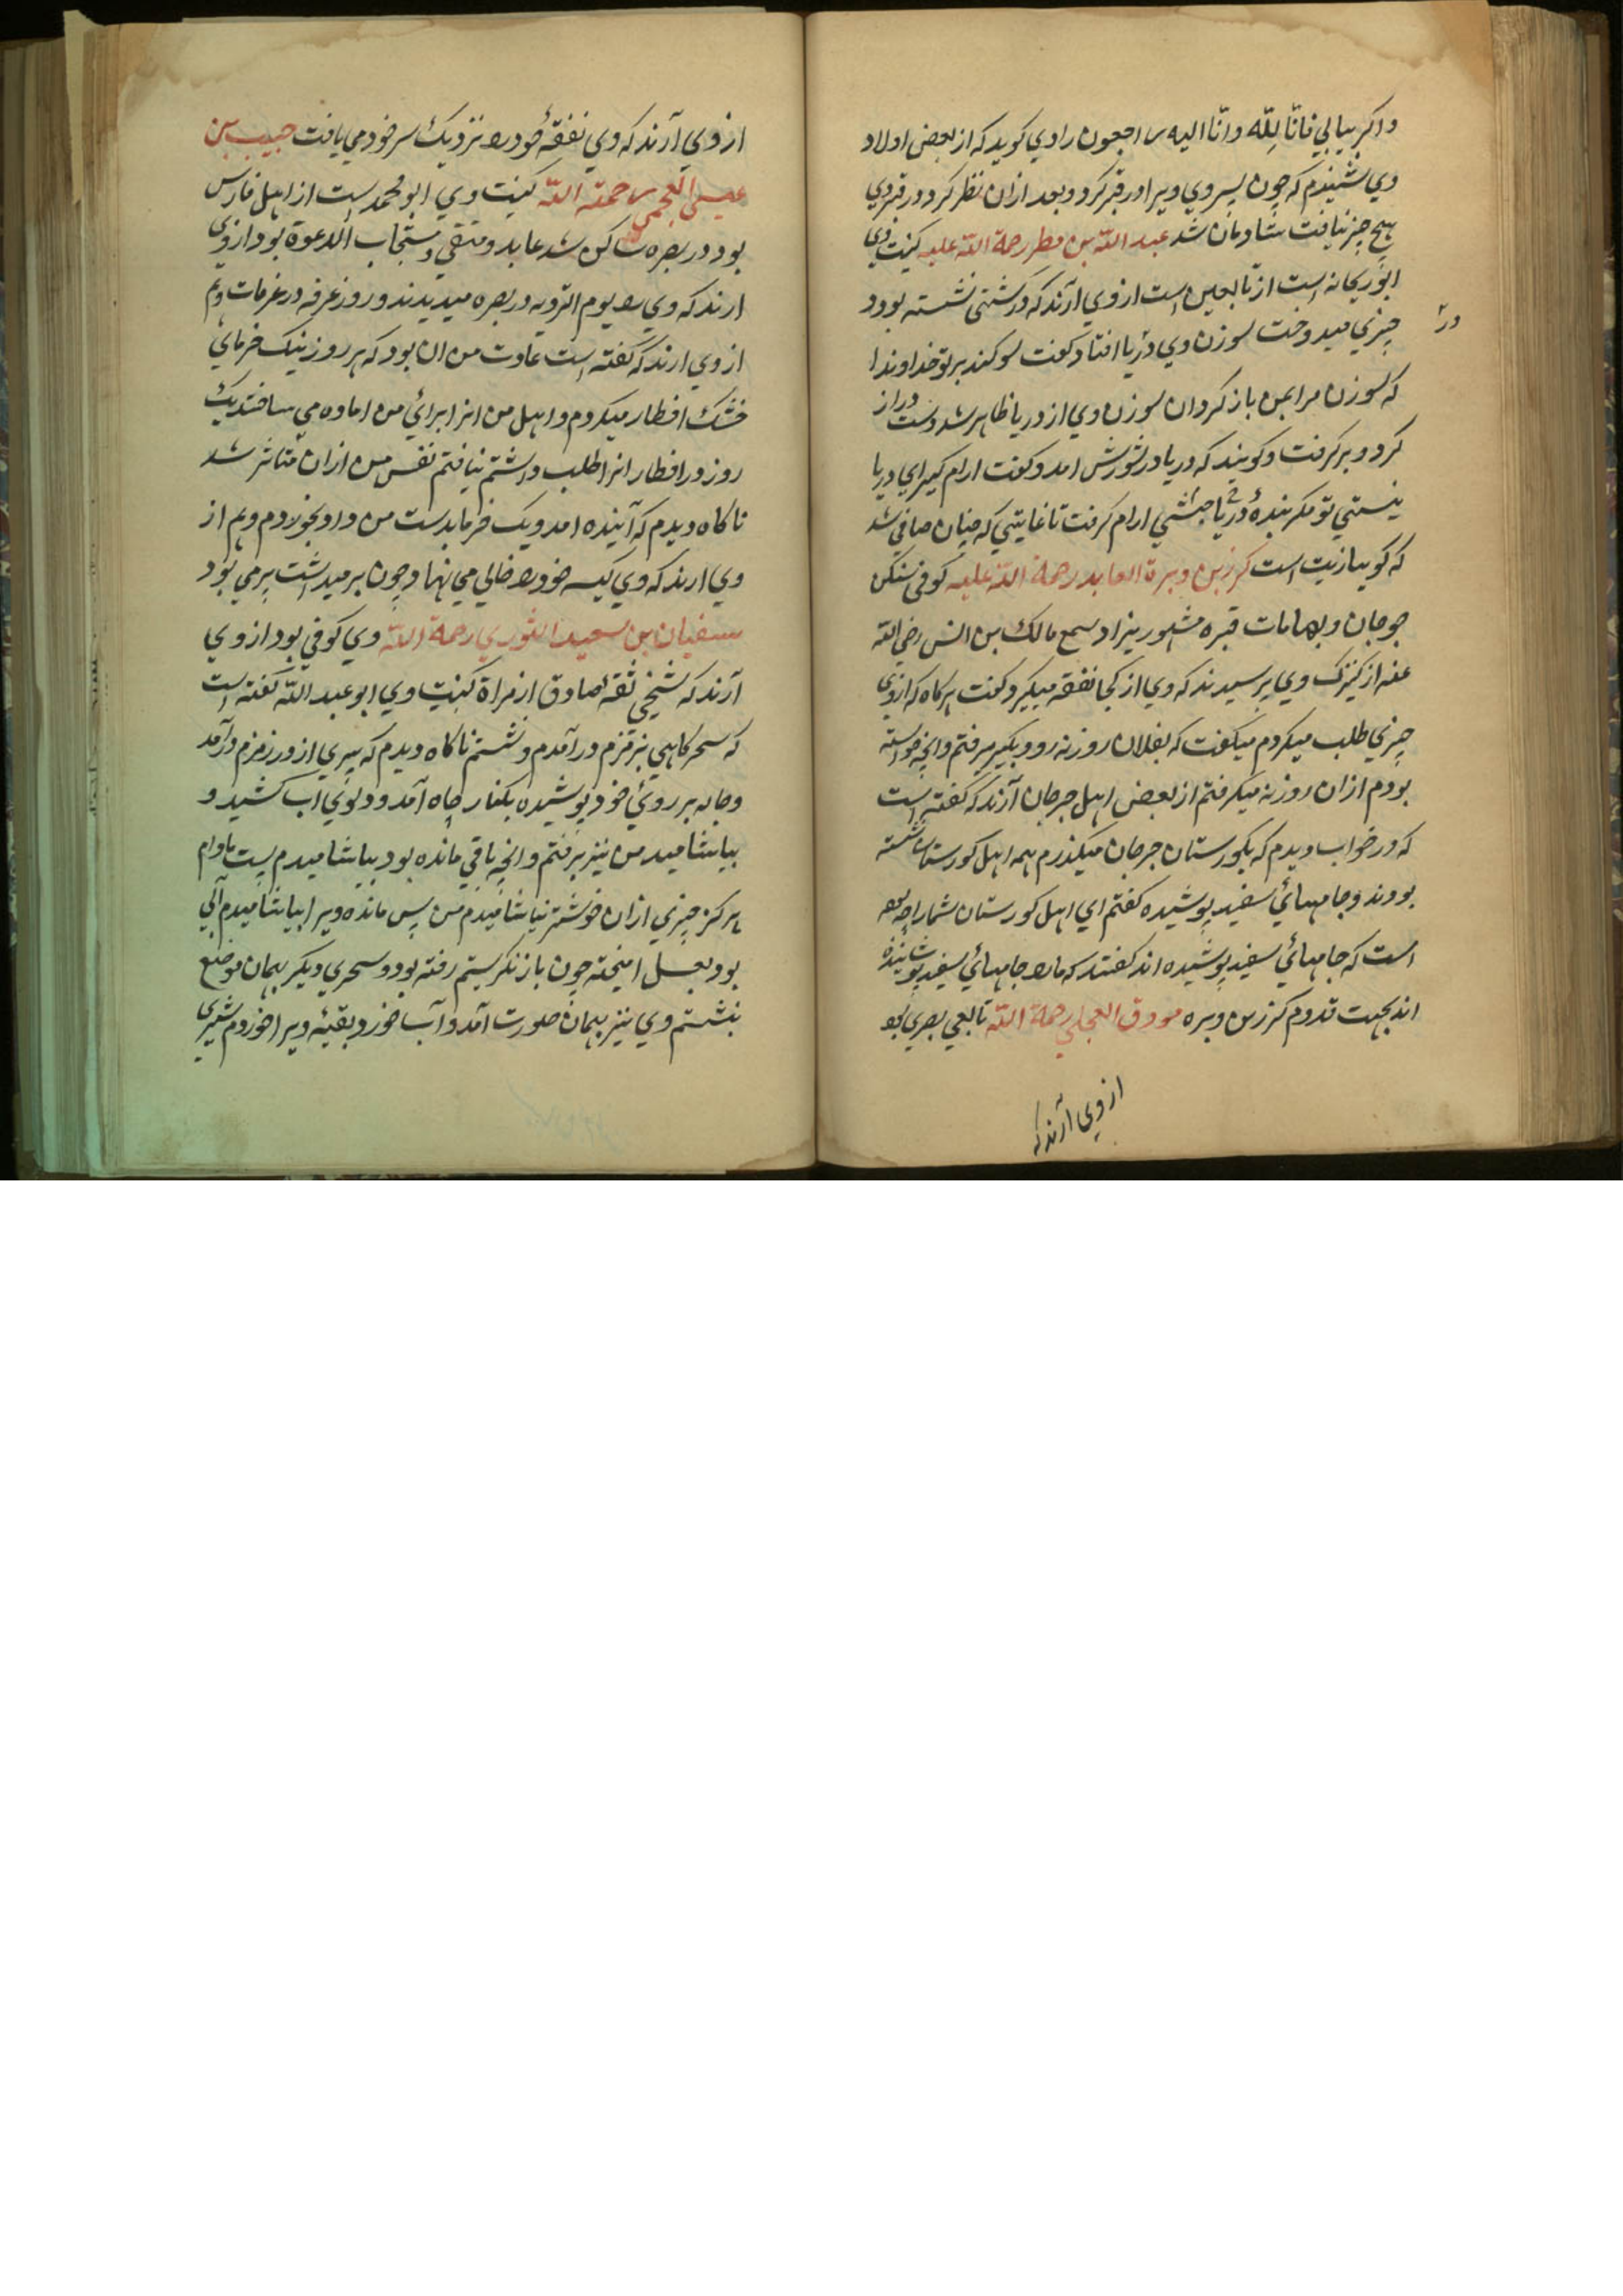 و اکر بیابی فانا لِلّه و انّا الیه راجعون راوی کوید که از بعض اولاد
وی شنیدم که چون پسر وی ویرا در قبر کرد و بعد از ان نظر کرد در قبر وی
هیچ چیز نیافت شادمان شد عبد اللّه بن مطر رحمة اللّه علیه کنیت وی
ابو ریحانه است از تابعین است از وی آرند که در کشتی نشسته بود و
چیزی میدوخت سوزن وی در دریا افتاد کفت سوکند بر تو خداوندا
در
که سوزن مرا بمن باز کردان سوزن وی از دریا ظاهر شد دست دراز
کرد و بر کرفت و کویند که دریا در شورش امد و کفت ارام کیر ای دریا
نیستی تو مکر بندهٔ حبشی ارام کرفت تا غایتی که چنان صافی شد
که کویا زیت است کرز بن وبرة العابد رحمة اللّه علیه کوفی سکن
جرجان و بها مات قبره مشهور یزار سمع مالک بن انس رضی اللّه
عنه از کنیزک وی پرسیدند که وی از کجا نفقه میکیرد کفت هر کاه که از وی
چیزی طلب میکردم میکفت که بفلان روزنه رو و بکیر میرفتم و انچه خواسته
بودم ازان روزنه میکرفتم از بعض اهل جرجان آرند که کفته است
که در خواب دیدم که بکورستان جرجان میکذرم همه اهل کورستان نشسته
بودند و جامهائی سفید پوشیده کفتم ای اهل کورستان شما را چه بوده
است که جامهائی سفید پوشیده اند کفتند که مارا جامهائی سفید پوشانیده
اند بجهت قدوم کرز بن وبره مورق العجلی رحمة اللّه تابعی بصری بود
از وی آرند که
از وی آرند که وی نفقهٔ خود را نزدیک سر خود می یافت حبیب بن
عیسی العجمی رحمته اللّه کنیت وی ابو محمد است از اهل فارس
بود در بصره ساکن شد عابد و متقی و مستجاب الدعوة بود از وی
ارند که ویرا یوم الترویه در بصره میدیدند و روز عرفه در عرفات و هم
از وی ارند که کفته است عادت من ان بود که هر روز بیک خرمائی
خشک افطار میکردم و اهل من انرا برائی من اماده می ساختند یک
روز در افطار انرا طلب داشتم نیافتم نفس من ازان متاثر شد
ناکاه دیدم که آینده امد و یک خرما بدست من داد بخوردم و هم از
وی ارند که وی کیسه خود را خالی می نهاد و چون بر میداشت پر می بود
سفیان بن سعید الثوری رحمة اللّه وی کوفی بود از وی
آرند که شیخی ثقهٔ صادق از مراة کنیت وی ابو عبد اللّه کفته است
که سحرکاهی بزمزم در آمدم و نشستم ناکاه دیدم که پیری از در زمزم در آمد
و جامه بر روئی خود پوشیده بکنار چاه آمد و دلوی اب کشید و
بیاشامید من نیز برفتم و انچه باقی مانده بود بیاشامیدم پست بادام
هرکز چیزی ازان خوشتر نیاشامیدم من پس مانده ویرا بیاشامیدم آبی
بود بعسل امیخته چون باز نکرستم رفته بود و سحری دیکر بهمان موضع
بنشستم وی نیز بهمان صورت آمد و آب خورد بقیهٔ ویرا خوردم شیری